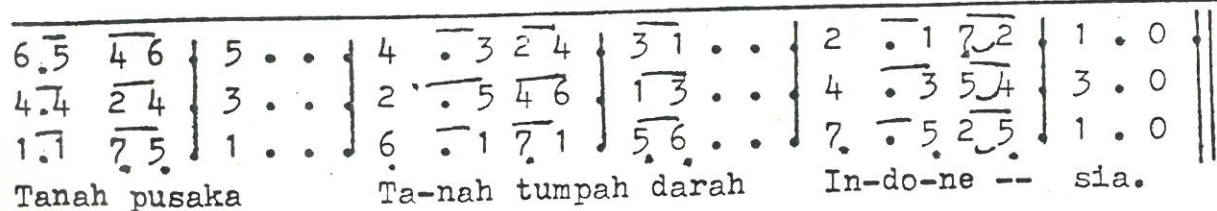 6.5 4 6 | 5 . . | 4 . 3 2 4 | 3 1 . . | 2 . 1 7 2 | 1 . 0 ||
4.4 2 4 | 3 . . | 2 . 5 4 6 | 1 3 . . | 4 . 3 5 4 | 3 . 0
1.1 7 5 | 1 . . | 6 . 1 7 1 | 5 6 . . | 7 . 5 2 5 | 1 . 0
Tanah pusaka Ta-nah tumpah darah In-do-ne -- sia.